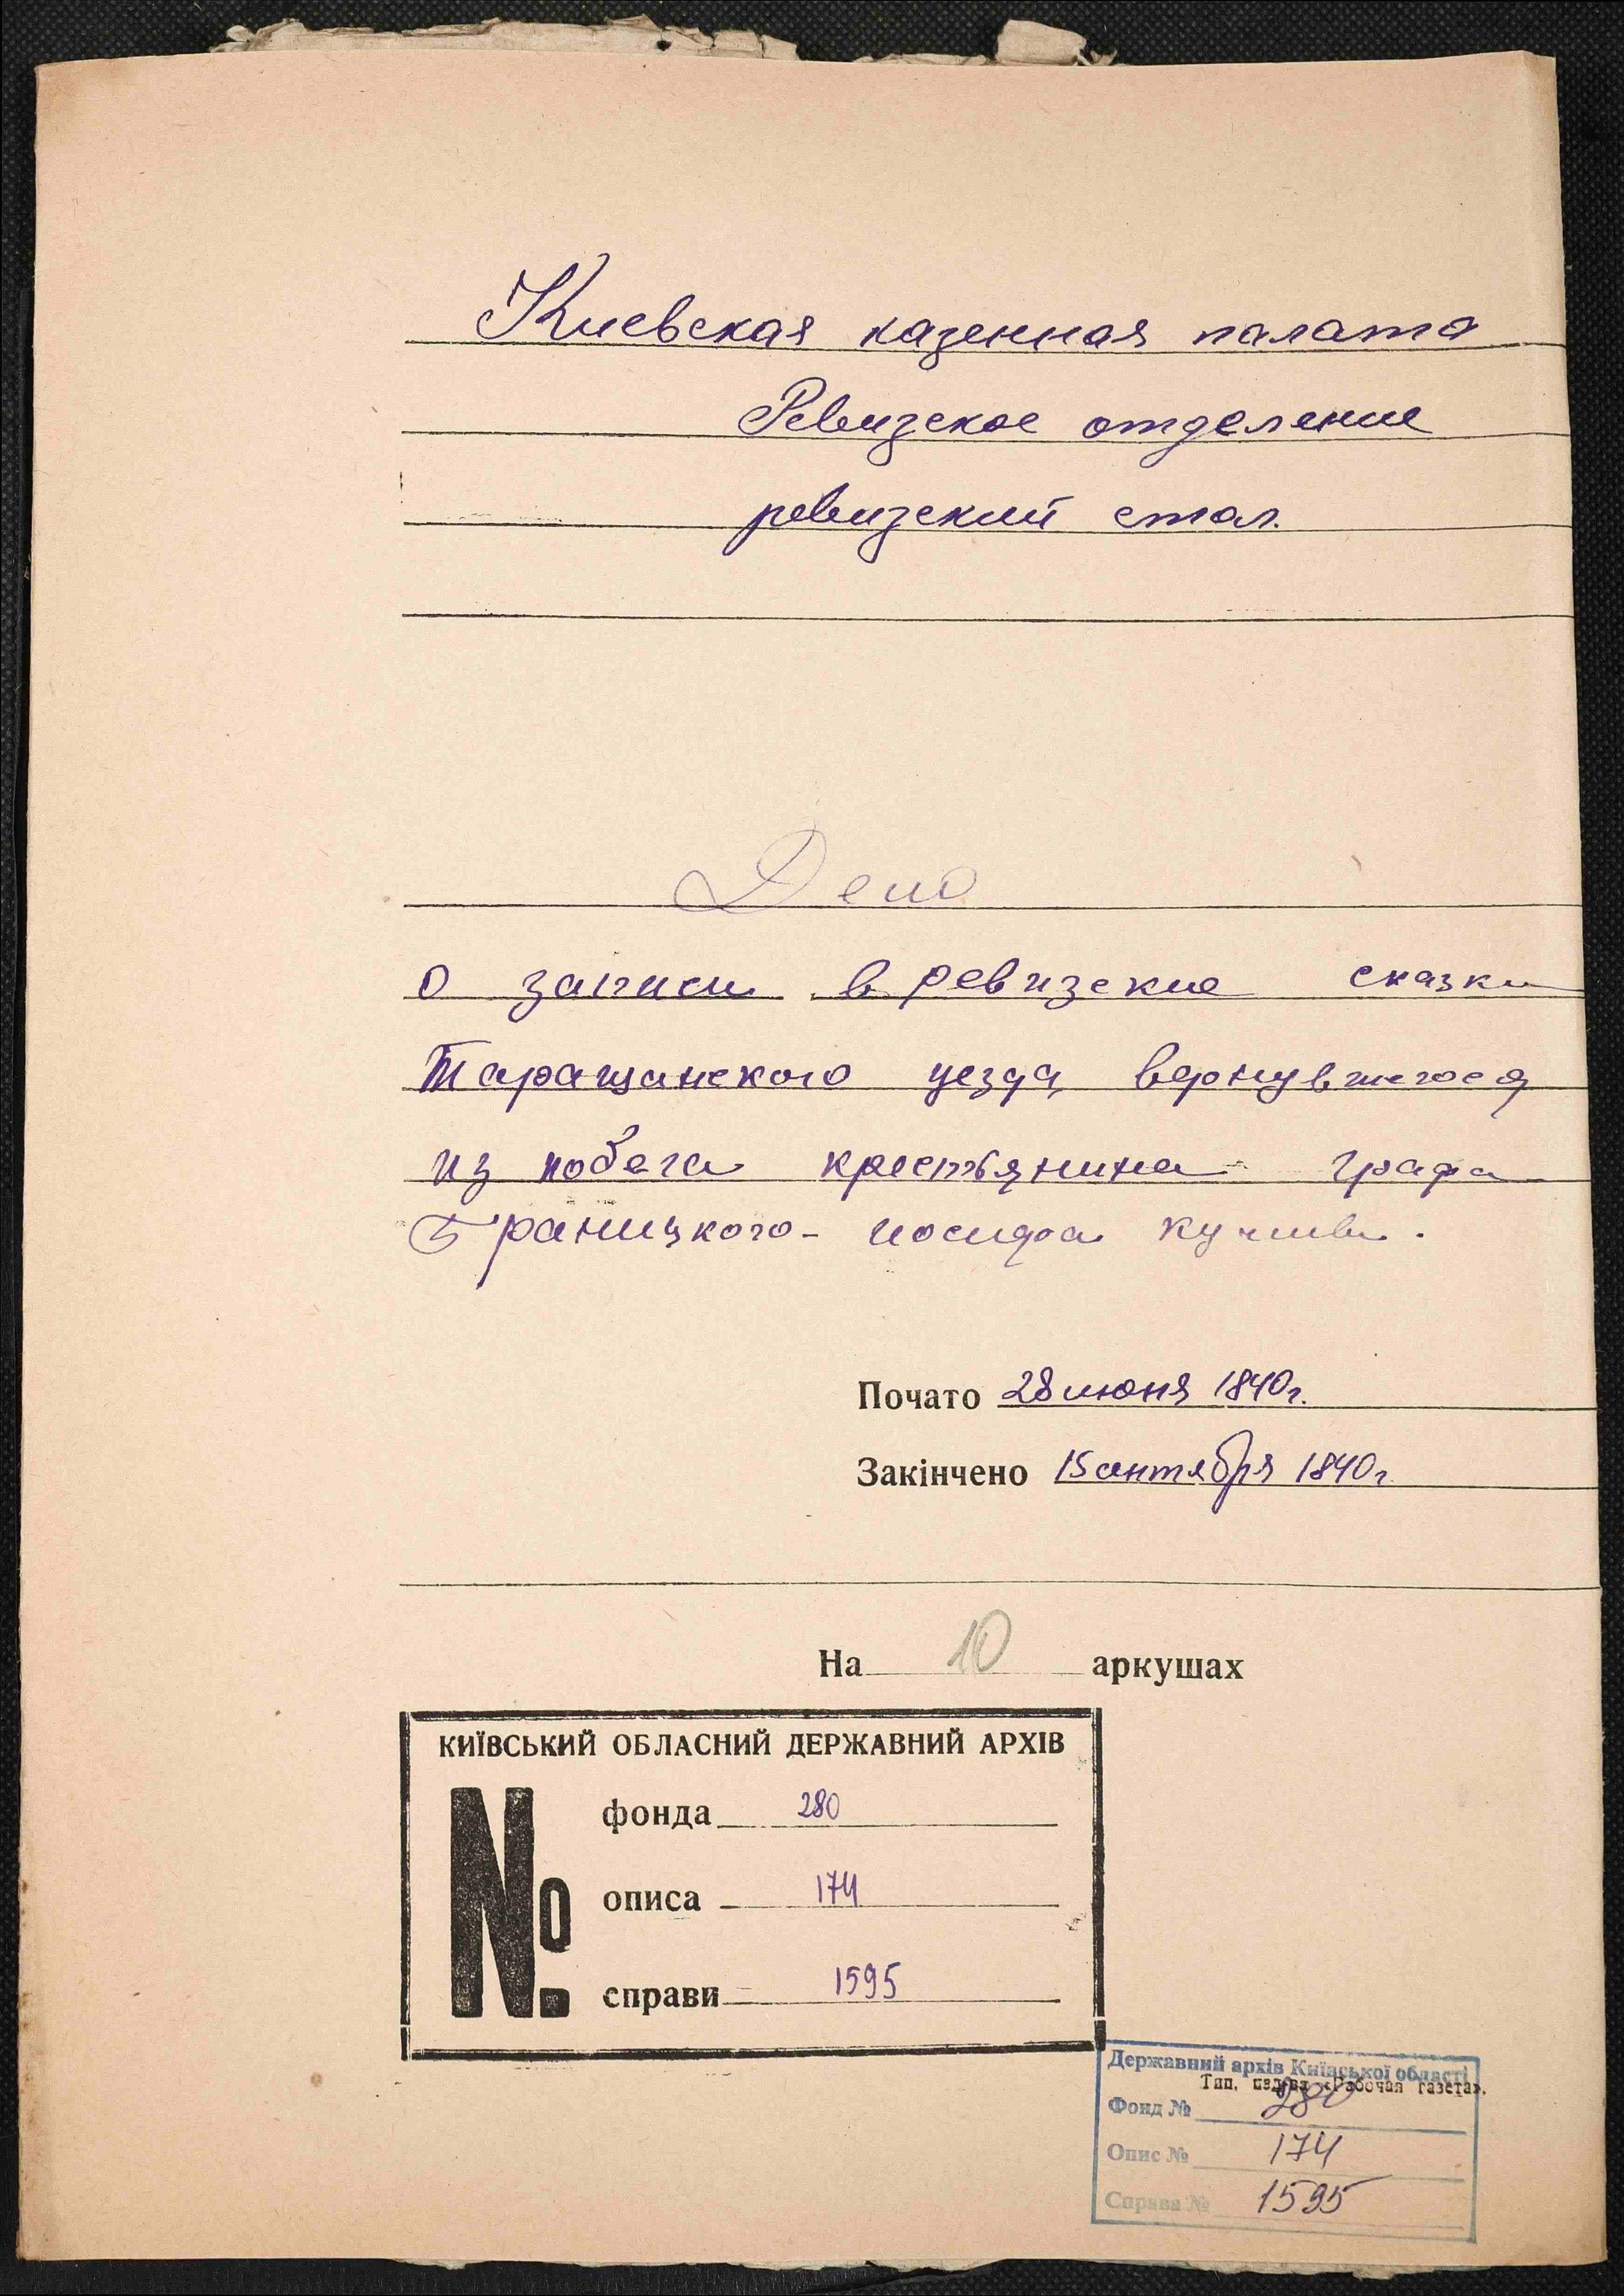 Киевская казенная палата
Ревизское отделение
ревизский стол.
Дело
о записи в ревизские сказки
Таращанского уезда, вернувшегося
из побега крестьянина графа
Браницкого - иосифа
Почато 28 июня 1840г.
Закінчено 15 сентября 1840г.
На 10 аркушах
КИЇВСЬКИЙ ОБЛАСНИЙ ДЕРЖАВНИЙ АРХІВ
№
фонда 280
описа 174
справи 1595
Державний архів Київської області
Тип. изд-ва «Рабочая газета».
Фонд № 280
Опис № 174
Справа № 1595